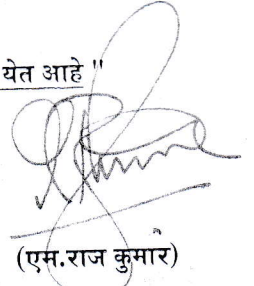 येत आहे "
(एम.राज कुमार)